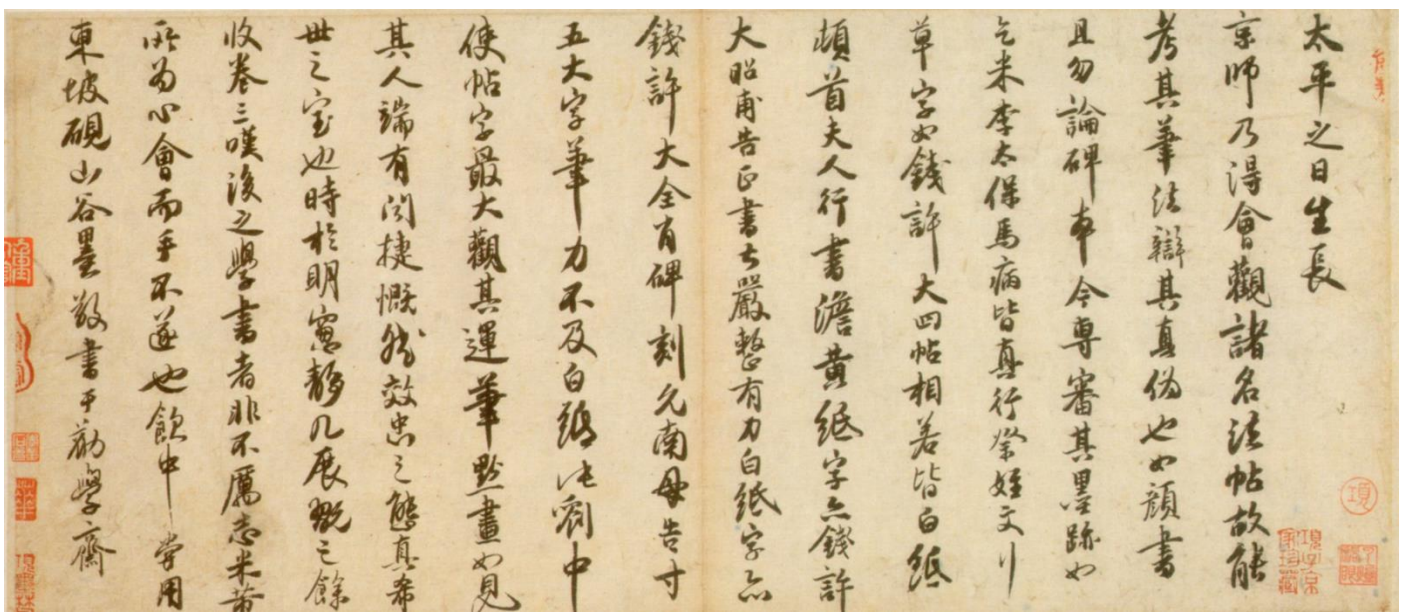 太平之日生長
京師乃得會觀諸名法帖故能
考其筆法辯其真偽也如顏書
且勿論碑本今專審其墨跡如
乞米李太保馬病皆真行祭姪文行
草字如錢許大四帖相若皆白紙
頓首夫人行書澹黃紙字亦錢許
大昭甫告正書尤嚴整有力白紙字亦
錢許大全有碑刻允南母告寸
五大字筆力不及白綾此劉中
使帖字最大觀其運筆點畫如見
其人端有聞捷慨然效忠之態真希
世之寶也時於明窗靜几展玩之餘
收卷三嘆後之學書者非不厲志米黃
所為心會而手不遂也飲中常用
東坡硯山谷墨敬書于勸學齋